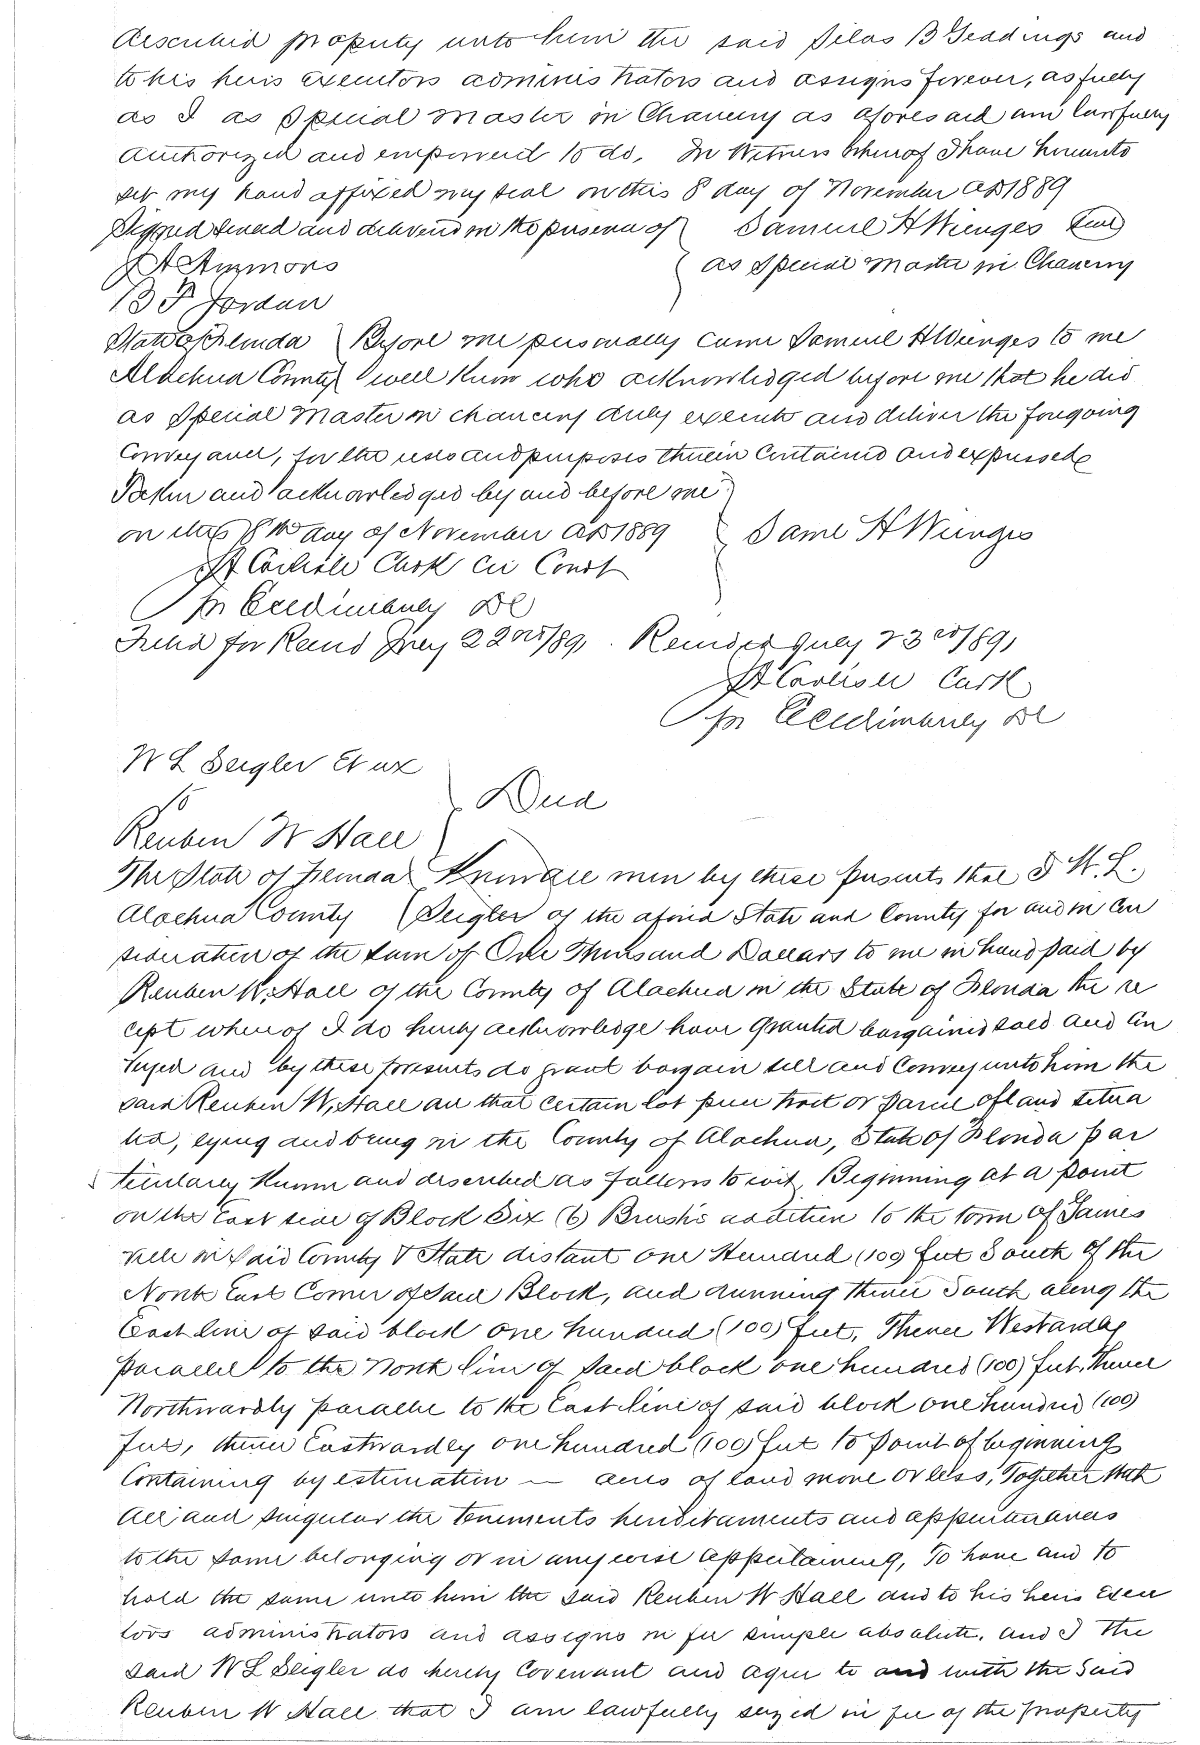 described property unto him the said Silas B Geddings and
to his heirs executors adminis trators and assigns forever, as fully
as I as Special Master in Chancery as aforesaid am lawfully
authorized and empowered to do, In Witness whereof I have hereunto
set my hand affixed my seal on this 8 day of November AD 1889
Signed sealed and delivered in the presence of } Samuel H Wienges Seal
J A Ammons as Special Master in Chancery
B F Jordan
State of Florida } Before me personally came Samuel H Wienges to me
Alachua County } well know who acknowledged before me that he did
as Special Master in chancery duly execute and deliver the foregoing
Conveyance, for the uses and purposes therein contained and expressed
Taken and acknowledged by and before me }
on this 8th day of November AD 1889 Saml H Wienges
J A Carlisle Clerk Cir Court
pr DC
Filed for Record July 22nd/89, Recorded July 23rd/89,
J A Carlisle Clerk
pr DC
W L Seigler Et ux
To } Deed
Reuben W Hall
The State of Florida } Know all men by these presents that I W. L.
Alachua County } Seigler of the aforesd State and County for and in con
sideration of the sum of One Thousand Dollars to me in hand paid by
Reuben W, Hall of the County of Alachua in the State of Florida the re
ceipt whereof I do hereby acknowledge have granted bargained sold and con
veyed and by these presents do grant bargain sell and convey unto him the
said Reuben W, Hall all that certain lot piece tract or parcel of land situa
ted, lying and being in the County of Alachua, State of Florida par
ticularly known and described as follows to wit, Beginning at a point
on the East side of Block Six (6) Brush's addition to the town of Gaines
ville in said County & State distant one Hundred (100) feet South of the
North East Corner of said Block, and running thence South along the
East line of said block one hundred (100) feet, Thence Westwardly
parallel to the North line of said block one hundred (100) feet, Thence
Northwardly parallel to the East line of said block one hundred (100)
feet, thence Eastwardly one hundred (100) feet to point of beginning
Containing by estimation — acres of land more or less, Together with
all and singular the tenements hereditaments and appurtenances
to the same belonging or in anywise appertaining, To have and to
hold the same unto him the said Reuben W Hall and to his heirs execu
tors administrators and assigns in fee simple absolute. and I the
said W L Seigler do hereby Covenant and agree to and with the said
Reuben W Hall that I am lawfully seized in fee of the property